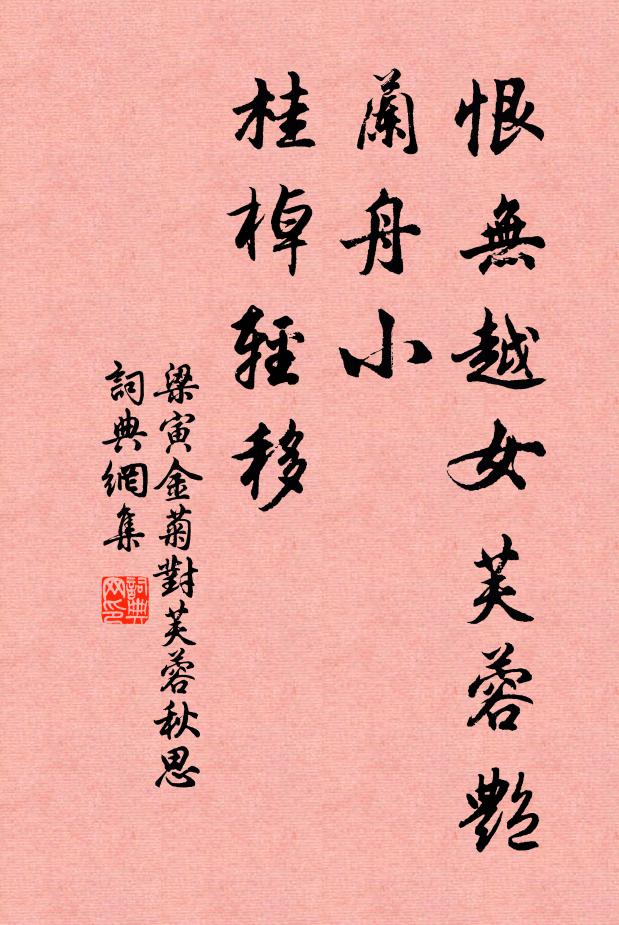 恨無越女芙蓉艷
蘭舟小
桂棹輕移
梁寅金菊對芙蓉秋思
詞典網集
詞典网印